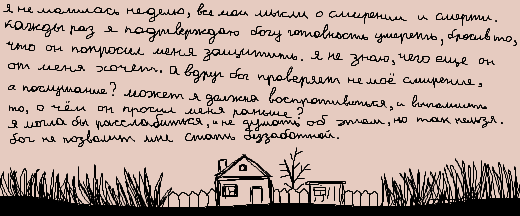 я не молилась неделю, все мои мысли о смирении и смерти.
каждый раз я подтверждаю богу готовность умереть, бросив то,
что он попросил меня защитить. я не знаю, чего ещё он
от меня хочет. а вдруг бог проверяет не моё смирение,
а послушание? может я должна воспротивиться, и выполнить
то, о чём он просил меня раньше?
я могла бы расслабиться, и не думать об этом, но так нельзя.
бог не позволит мне стать беззаботной.